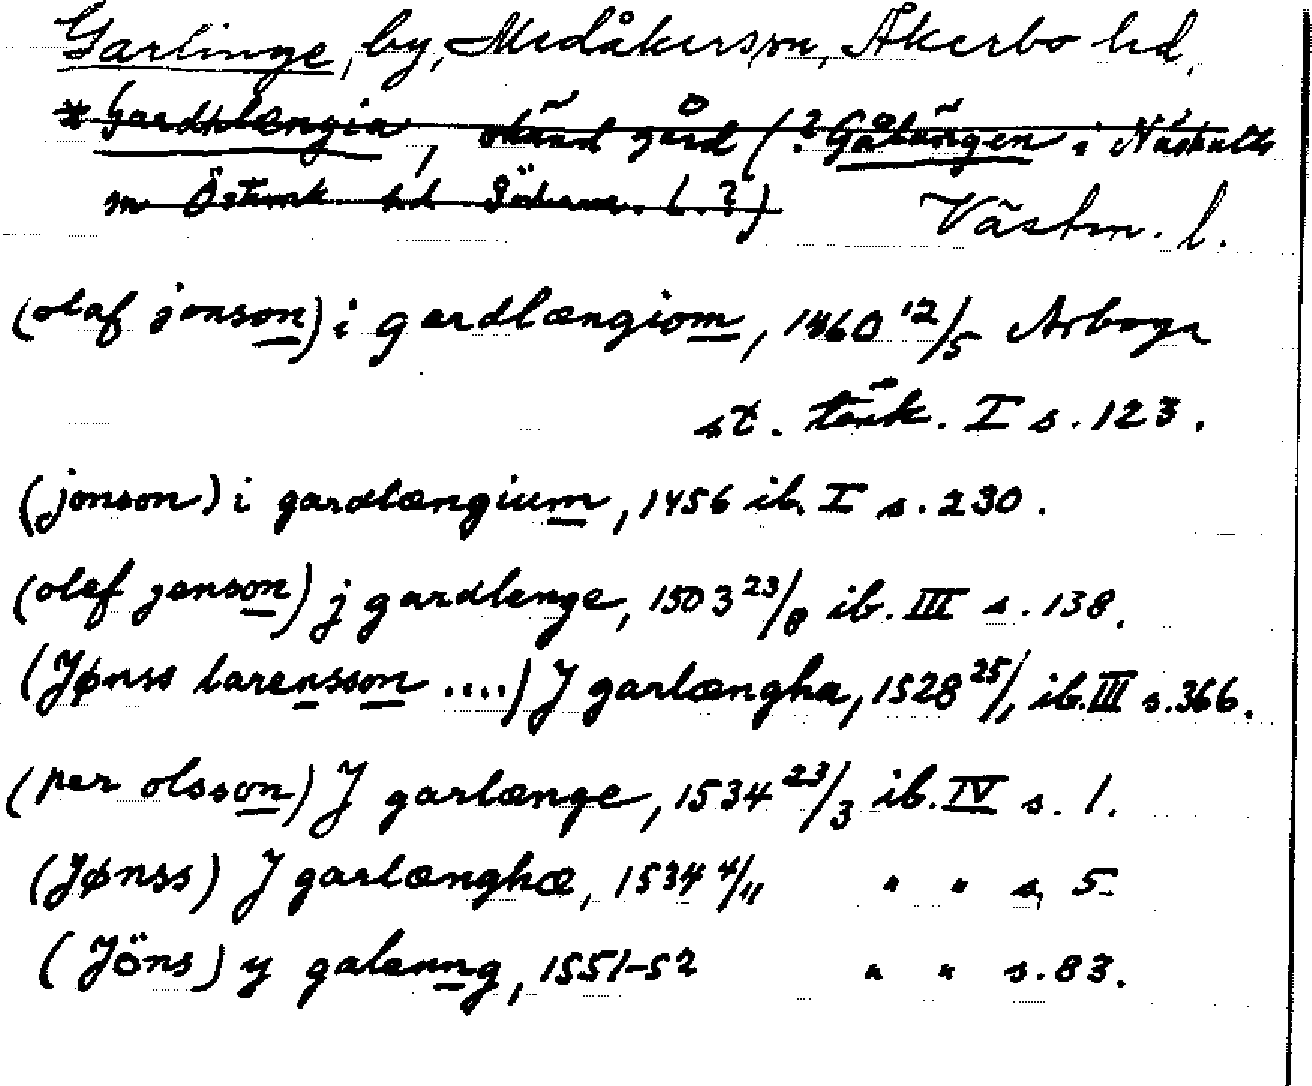 Garlinge, by, Medåkers sn, Åkerbo hd,
* Gardhlængia, okänd gård (? Gålängen i Näshulls
sn Östund hd Söderm. l. ?)
Västm. l.
(olaf jonson) i gardlængiom, 1460 12/5 Arboga
st. tänk. I s. 123.
(jonson) i gardlængium, 1456 ib. I s. 230.
(olef jenson) j gardlenge, 1503 23/8 ib. III s. 138.
(Jønss larensson ....) J garlængha, 1528 25/1 ib. III s. 366.
(per olsson) J garlænge, 1534 23/3 ib. IV s. 1.
(Jønss) J garlænghæ, 1534 4/11 " " s. 5.
(Jöns) y galenng, 1551-52 " " s. 83.